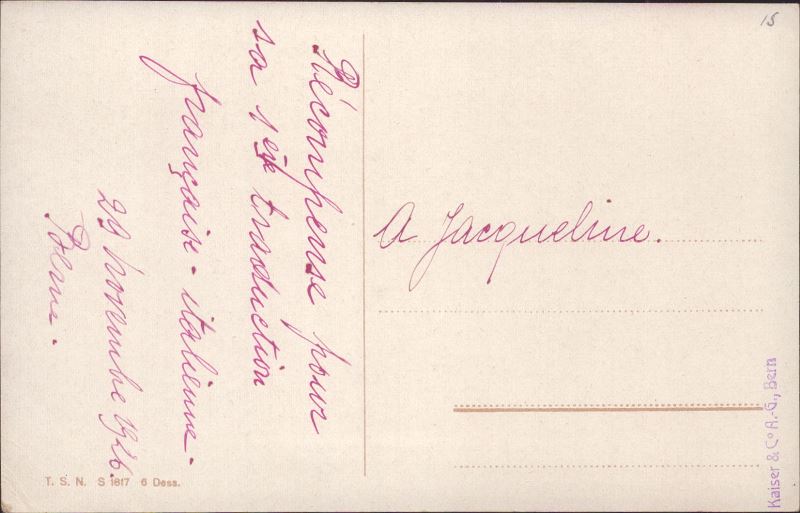 Récompense pour
sa 1ère traduction
française-italienne.
29 novembre 1926.
Berne.
A Jacqueline.
15
T. S. N. S 1817 6 Dess.
Kaiser & Co A.-G., Bern